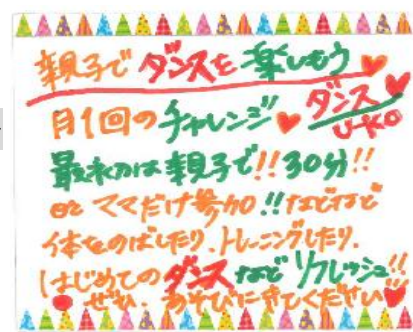 親子で ダンスを 楽しもう
月1回の チャレンジ ダンス
U-KO
最初は 親子で!! 30分!!
or ママだけ参加!! などなど
体をのばしたり、トレーニングしたり、
はじめての ダンス など リフレッシュ!!
ぜひ、あそびにきてください